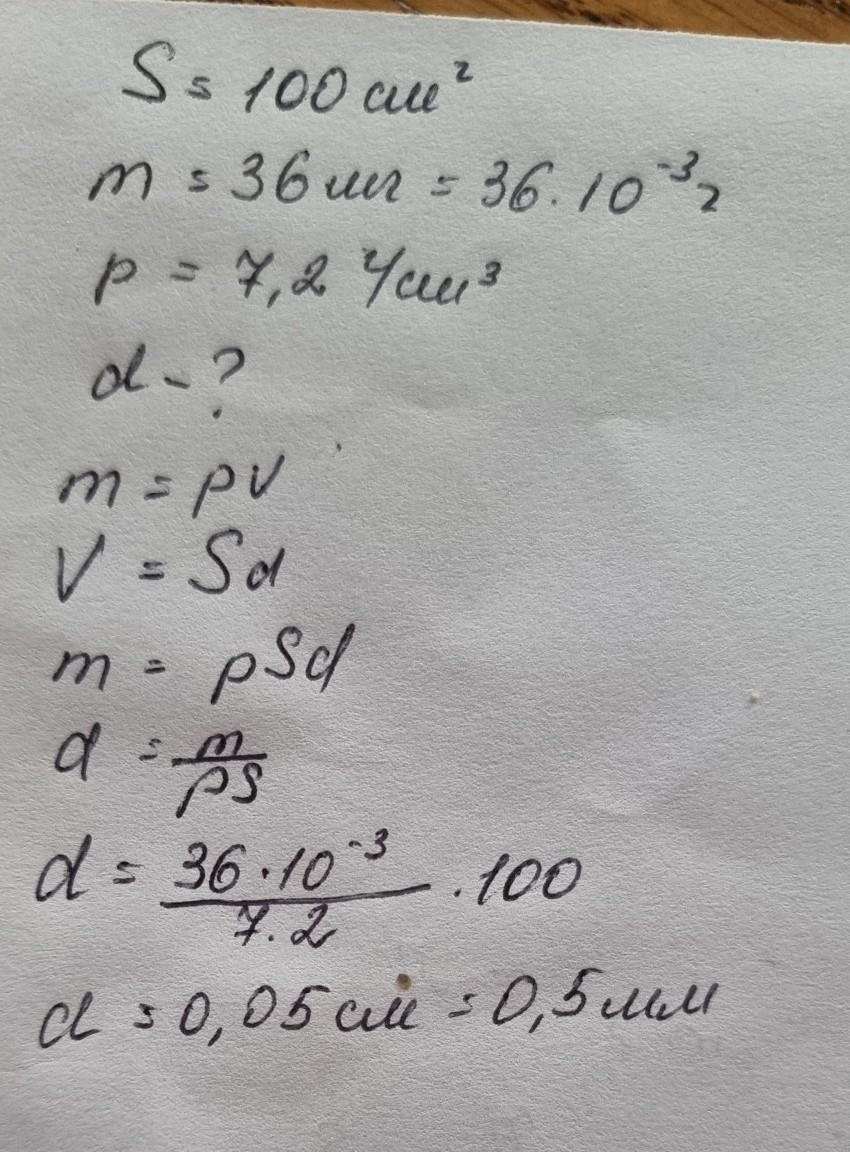 S = 100 см²
m = 36 мг = 36 · 10⁻³ г
ρ = 7,2 г/см³
d - ?
m = ρV
V = Sd
m = ρSd
d = m/ρS
d = 36 · 10⁻³/7.2 · 100
d = 0,05 см = 0,5 мм